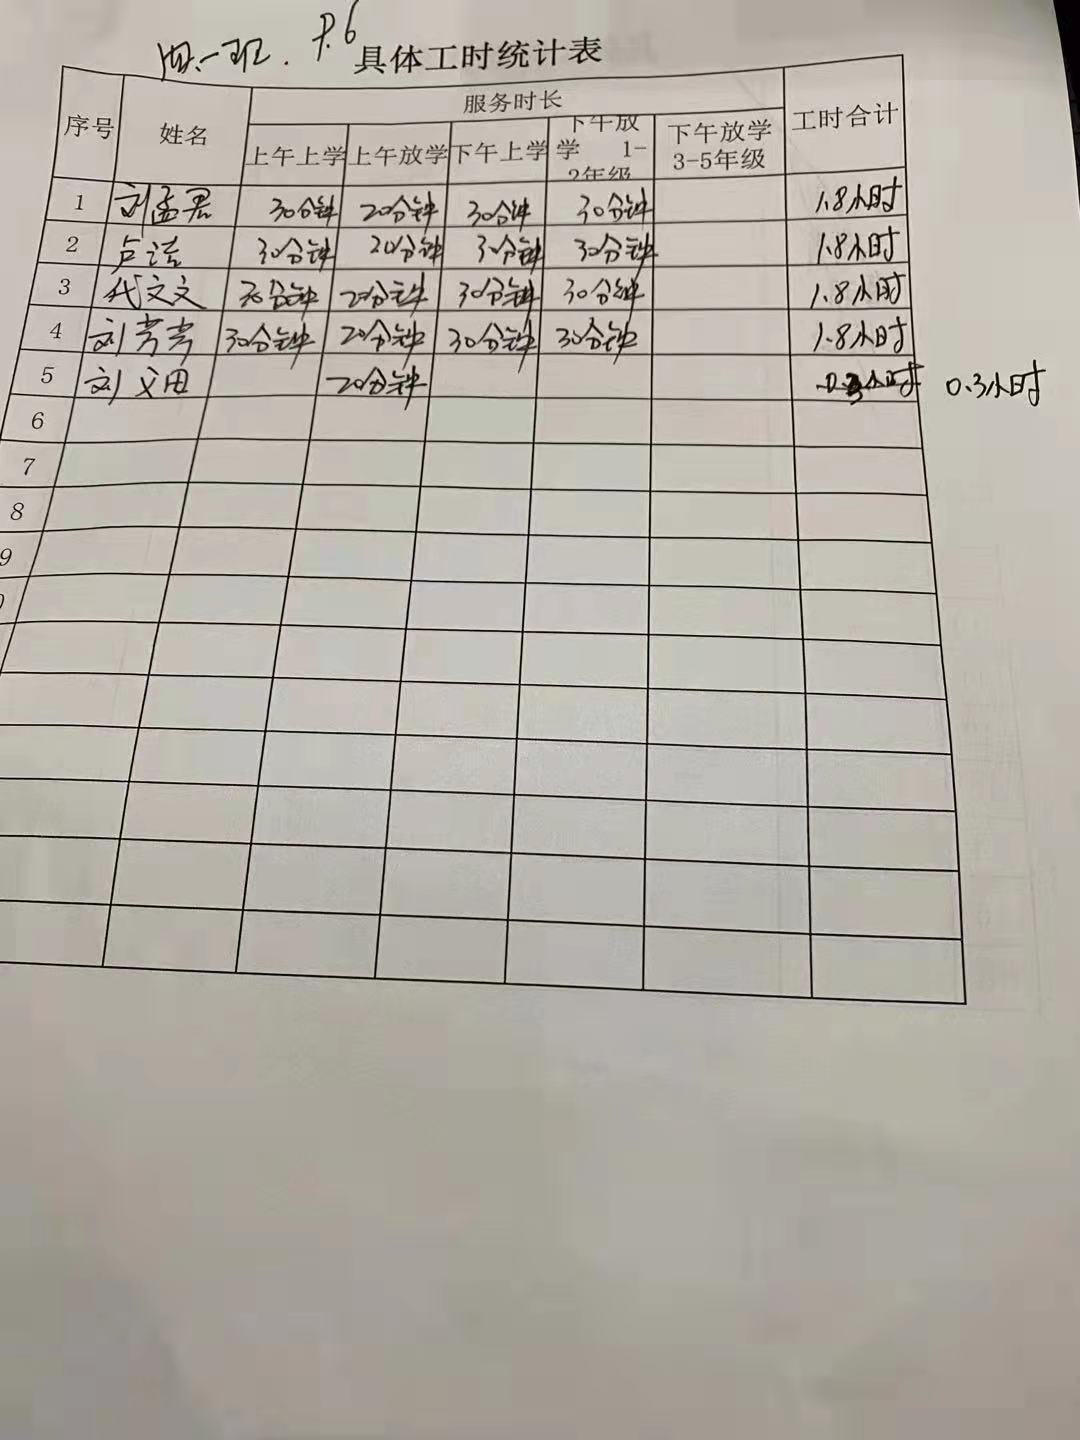 四.一班. P.6
具体工时统计表
序号 姓名 服务时长 工时合计
上午上学 上午放学 下午上学 下午放学 1-2年级 下午放学 3-5年级
1 刘孟君 30分钟 20分钟 30分钟 30分钟 1.8小时
2 卢洁 30分钟 20分钟 30分钟 30分钟 1.8小时
3 代文文 30分钟 20分钟 30分钟 30分钟 1.8小时
4 刘 30分钟 20分钟 30分钟 30分钟 1.8小时
5 刘文田 20分钟 0.3小时 0.3小时
6
7
8
9